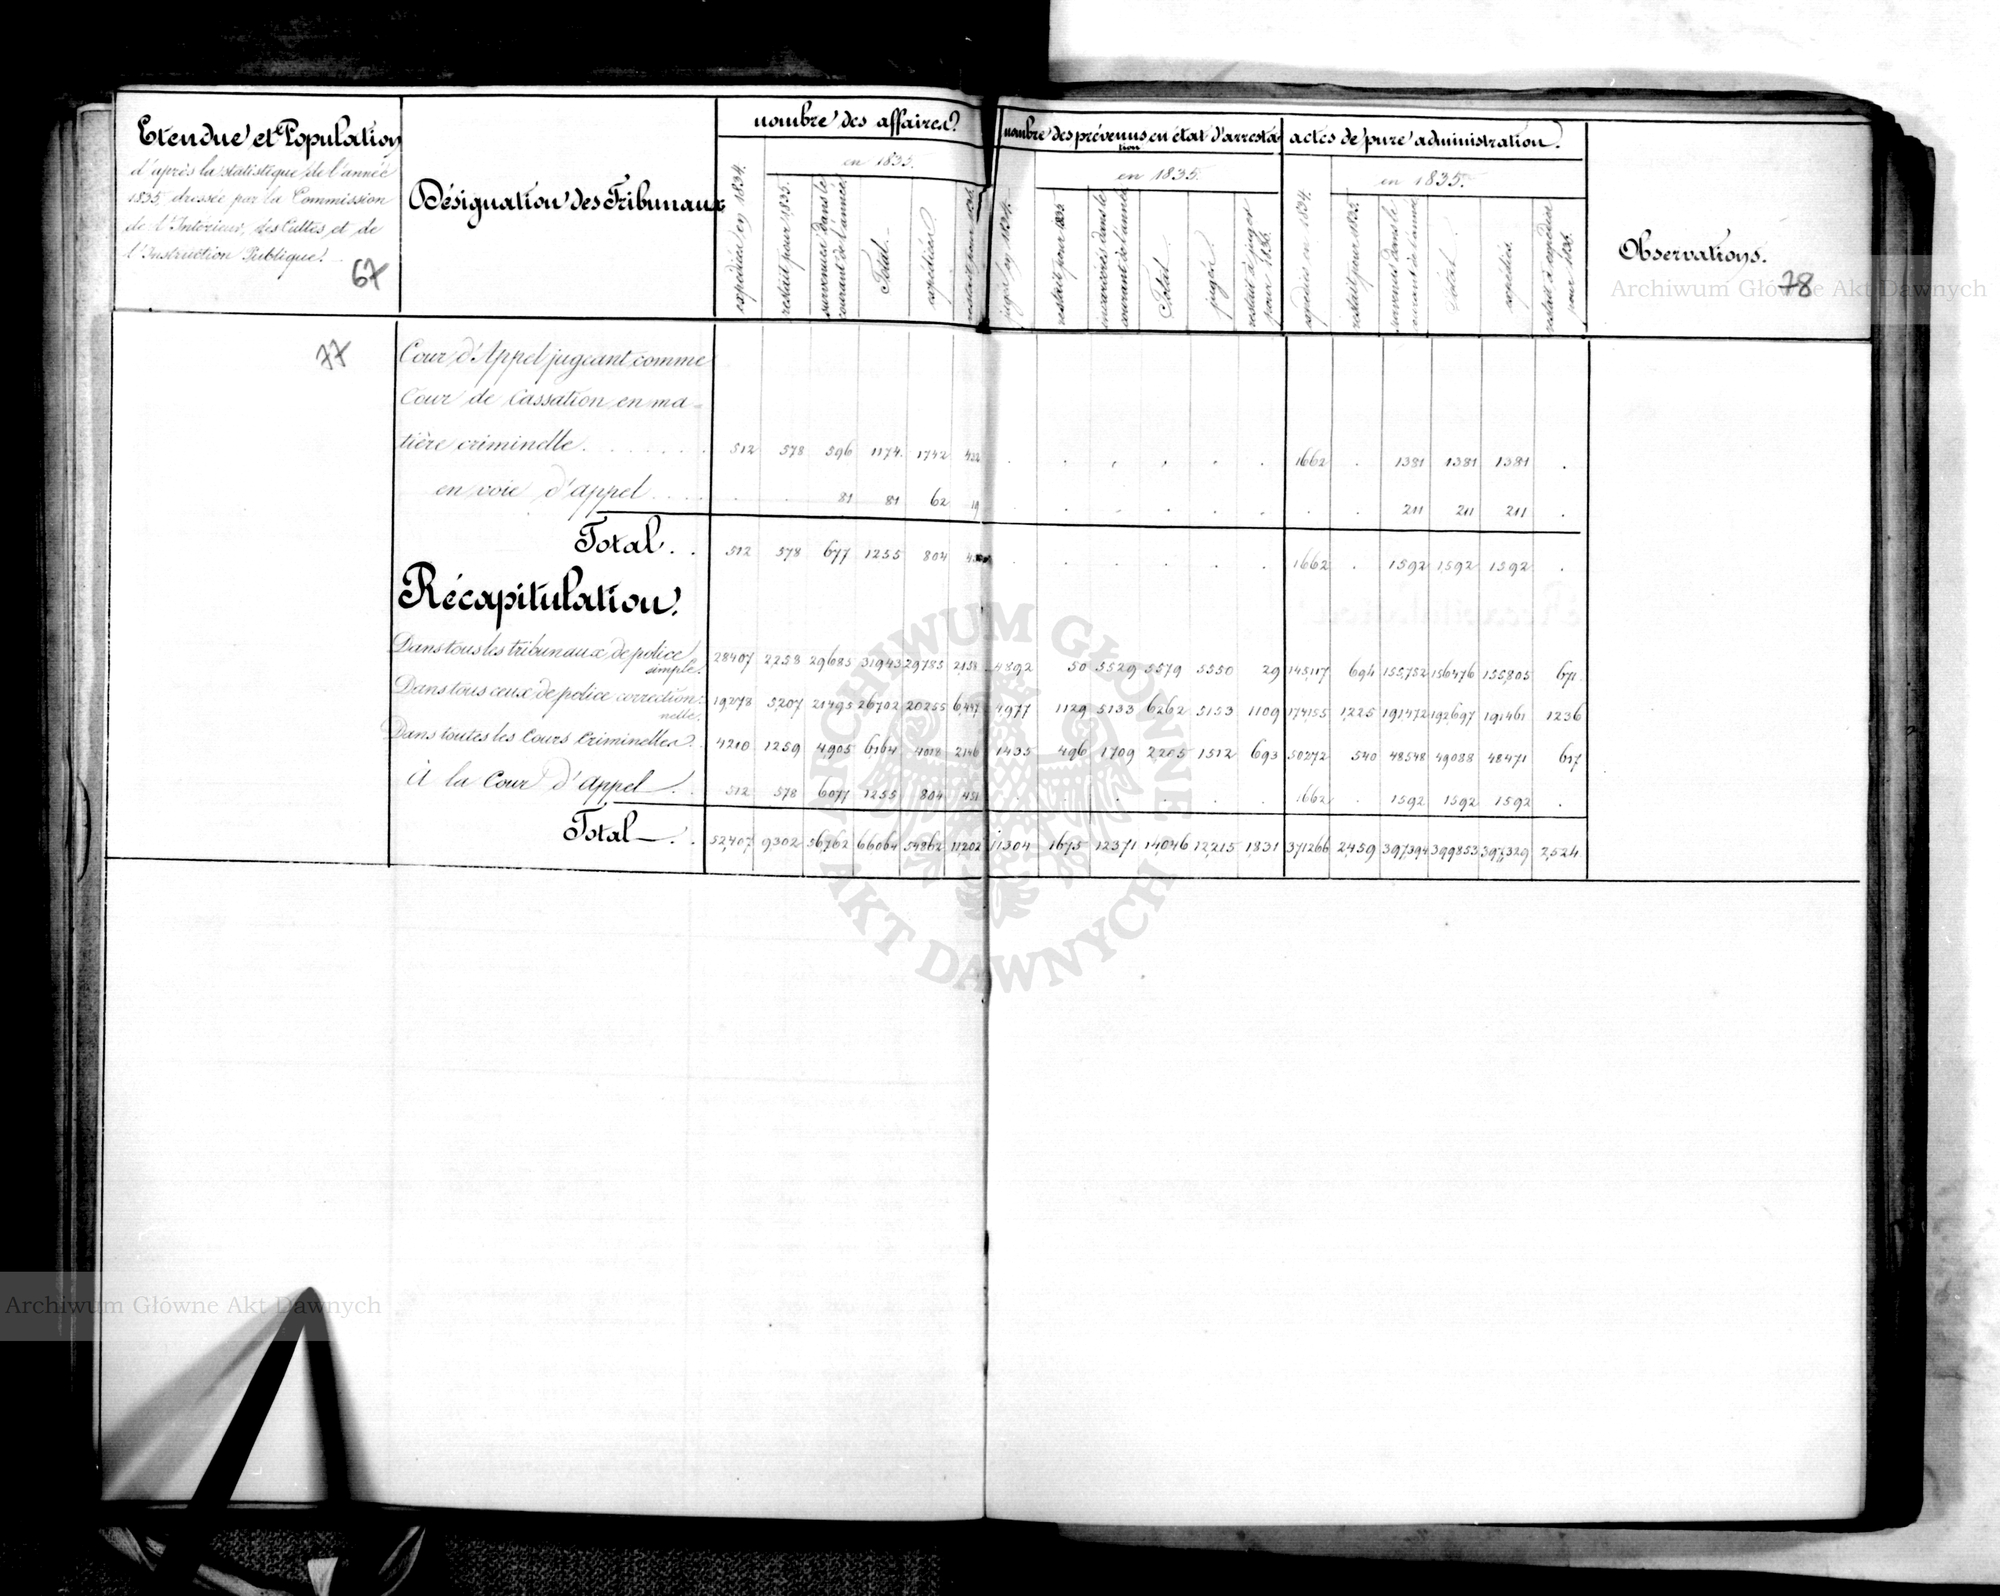 Etendue et Population
d'après la statistique de l'année
1835 dressée par la Commission
de l'Intérieur, des Cultes et de
l'Instruction Publique.
67
Désignation des Tribunaux
nombre des affaires
en 1835.
expédiées en 1834.
restait pour 1835.
survenues dans le
courant de l'année.
Total.
expédiées
nombre des prévenus en état d'arresta-
tion
en 1835.
jugés en 1834.
restait pour 1835
incarcérés dans le
courant de l'année
Total
jugés
restait à juger
pour 1836.
actes de pure administration.
en 1835.
expédiés en 1834.
restait pour 1835.
survenus dans le
courant de l'année
Total.
expédiés
restait à expédier
pour 1836.
Observations.
78
77
Cour d'Appel jugeant comme
Cour de Cassation en ma-
tière criminelle . . . . . . 512 578 596 1174. 1742 432 . . . . . . 1662 . 1381 1381 1381 .
en voie d'appel . . . . . 81 81 62 19 . . . . . . . . 211 211 211 .
Total. . 512 578 677 1255 804 . . . . . . 1662 . 1592 1592 1592 .
Récapitulation.
Dans tous les tribunaux de police
simple. 28407 2258 29685 31943 29785 2,158 4892 50 5529 5579 5550 29 145,117 694 155,752 156476 155,805 671.
Dans tous ceux de police correction-
nelle. 19,278 5,207 21495 26702 20255 6,447 4977 1129 5133 6262 5153 1109 174,155 1,225 191,472 192697 191461 1236
Dans toutes les Cours Criminelles. . 4210 1259 4905 6,164 4018 2146 1435 496 1709 2205 1512 693 50272 540 48548 49088 48471 617
À la Cour d'Appel . . 512 578 6077 1255 804 451 . . . . . . 1662 . 1592 1592 1592 .
Total . . 52,407 9302 56,762 66064 54862 11,202 11304 1675 12371 14,046 12,215 1,831 371266 2,459 397,394 399853 397,329 2,524
Archiwum Główne Akt Dawnych
ARCHIWUM GŁÓWNE AKT DAWNYCH
Archiwum Główne Akt Dawnych